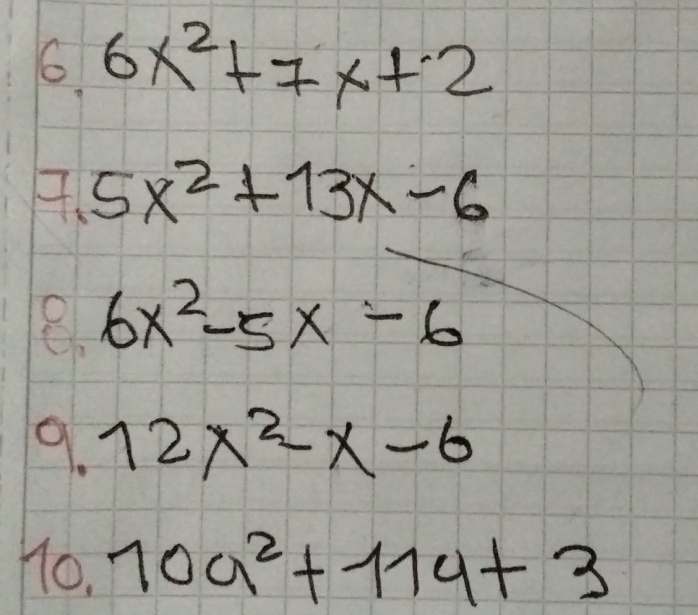 6. 6x²+7x+2
7. 5x²+13x-6
8. 6x²-5x-6
9. 12x²-x-6
10. 10a²+11a+3